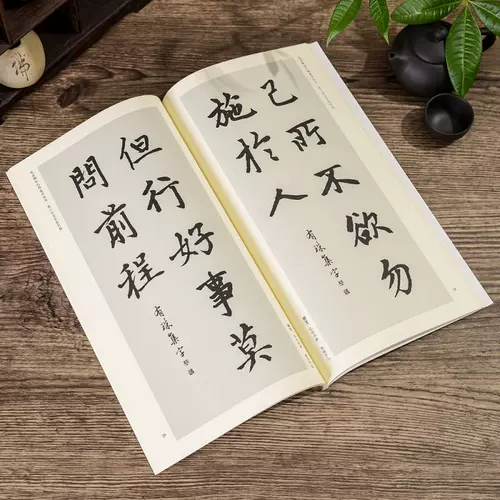 己所不欲勿
施於人
有珠集字
但行好事莫
問前程
有珠集字